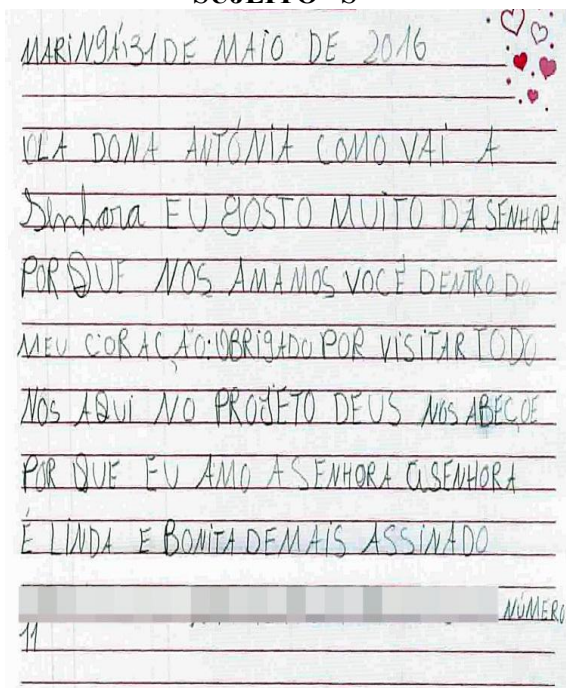 SUJEITO "S"
MARINGÁ,31 DE MAIO DE 2016
OLA DONA ANTÓNIA COMO VAI A
Senhora EU GOSTO MUITO DA SENHORA
POR QUE NOS AMAMOS VOCÊ DENTRO DO
MEU CORAÇÃO.OBRIGADO POR VISITAR TODO
NOS AQUI NO PROJETO DEUS NOS ABEÇOE
POR QUE EU AMO A SENHORA A SENHORA
É LINDA E BONITA DEMAIS ASSINADO
NÚMERO
11